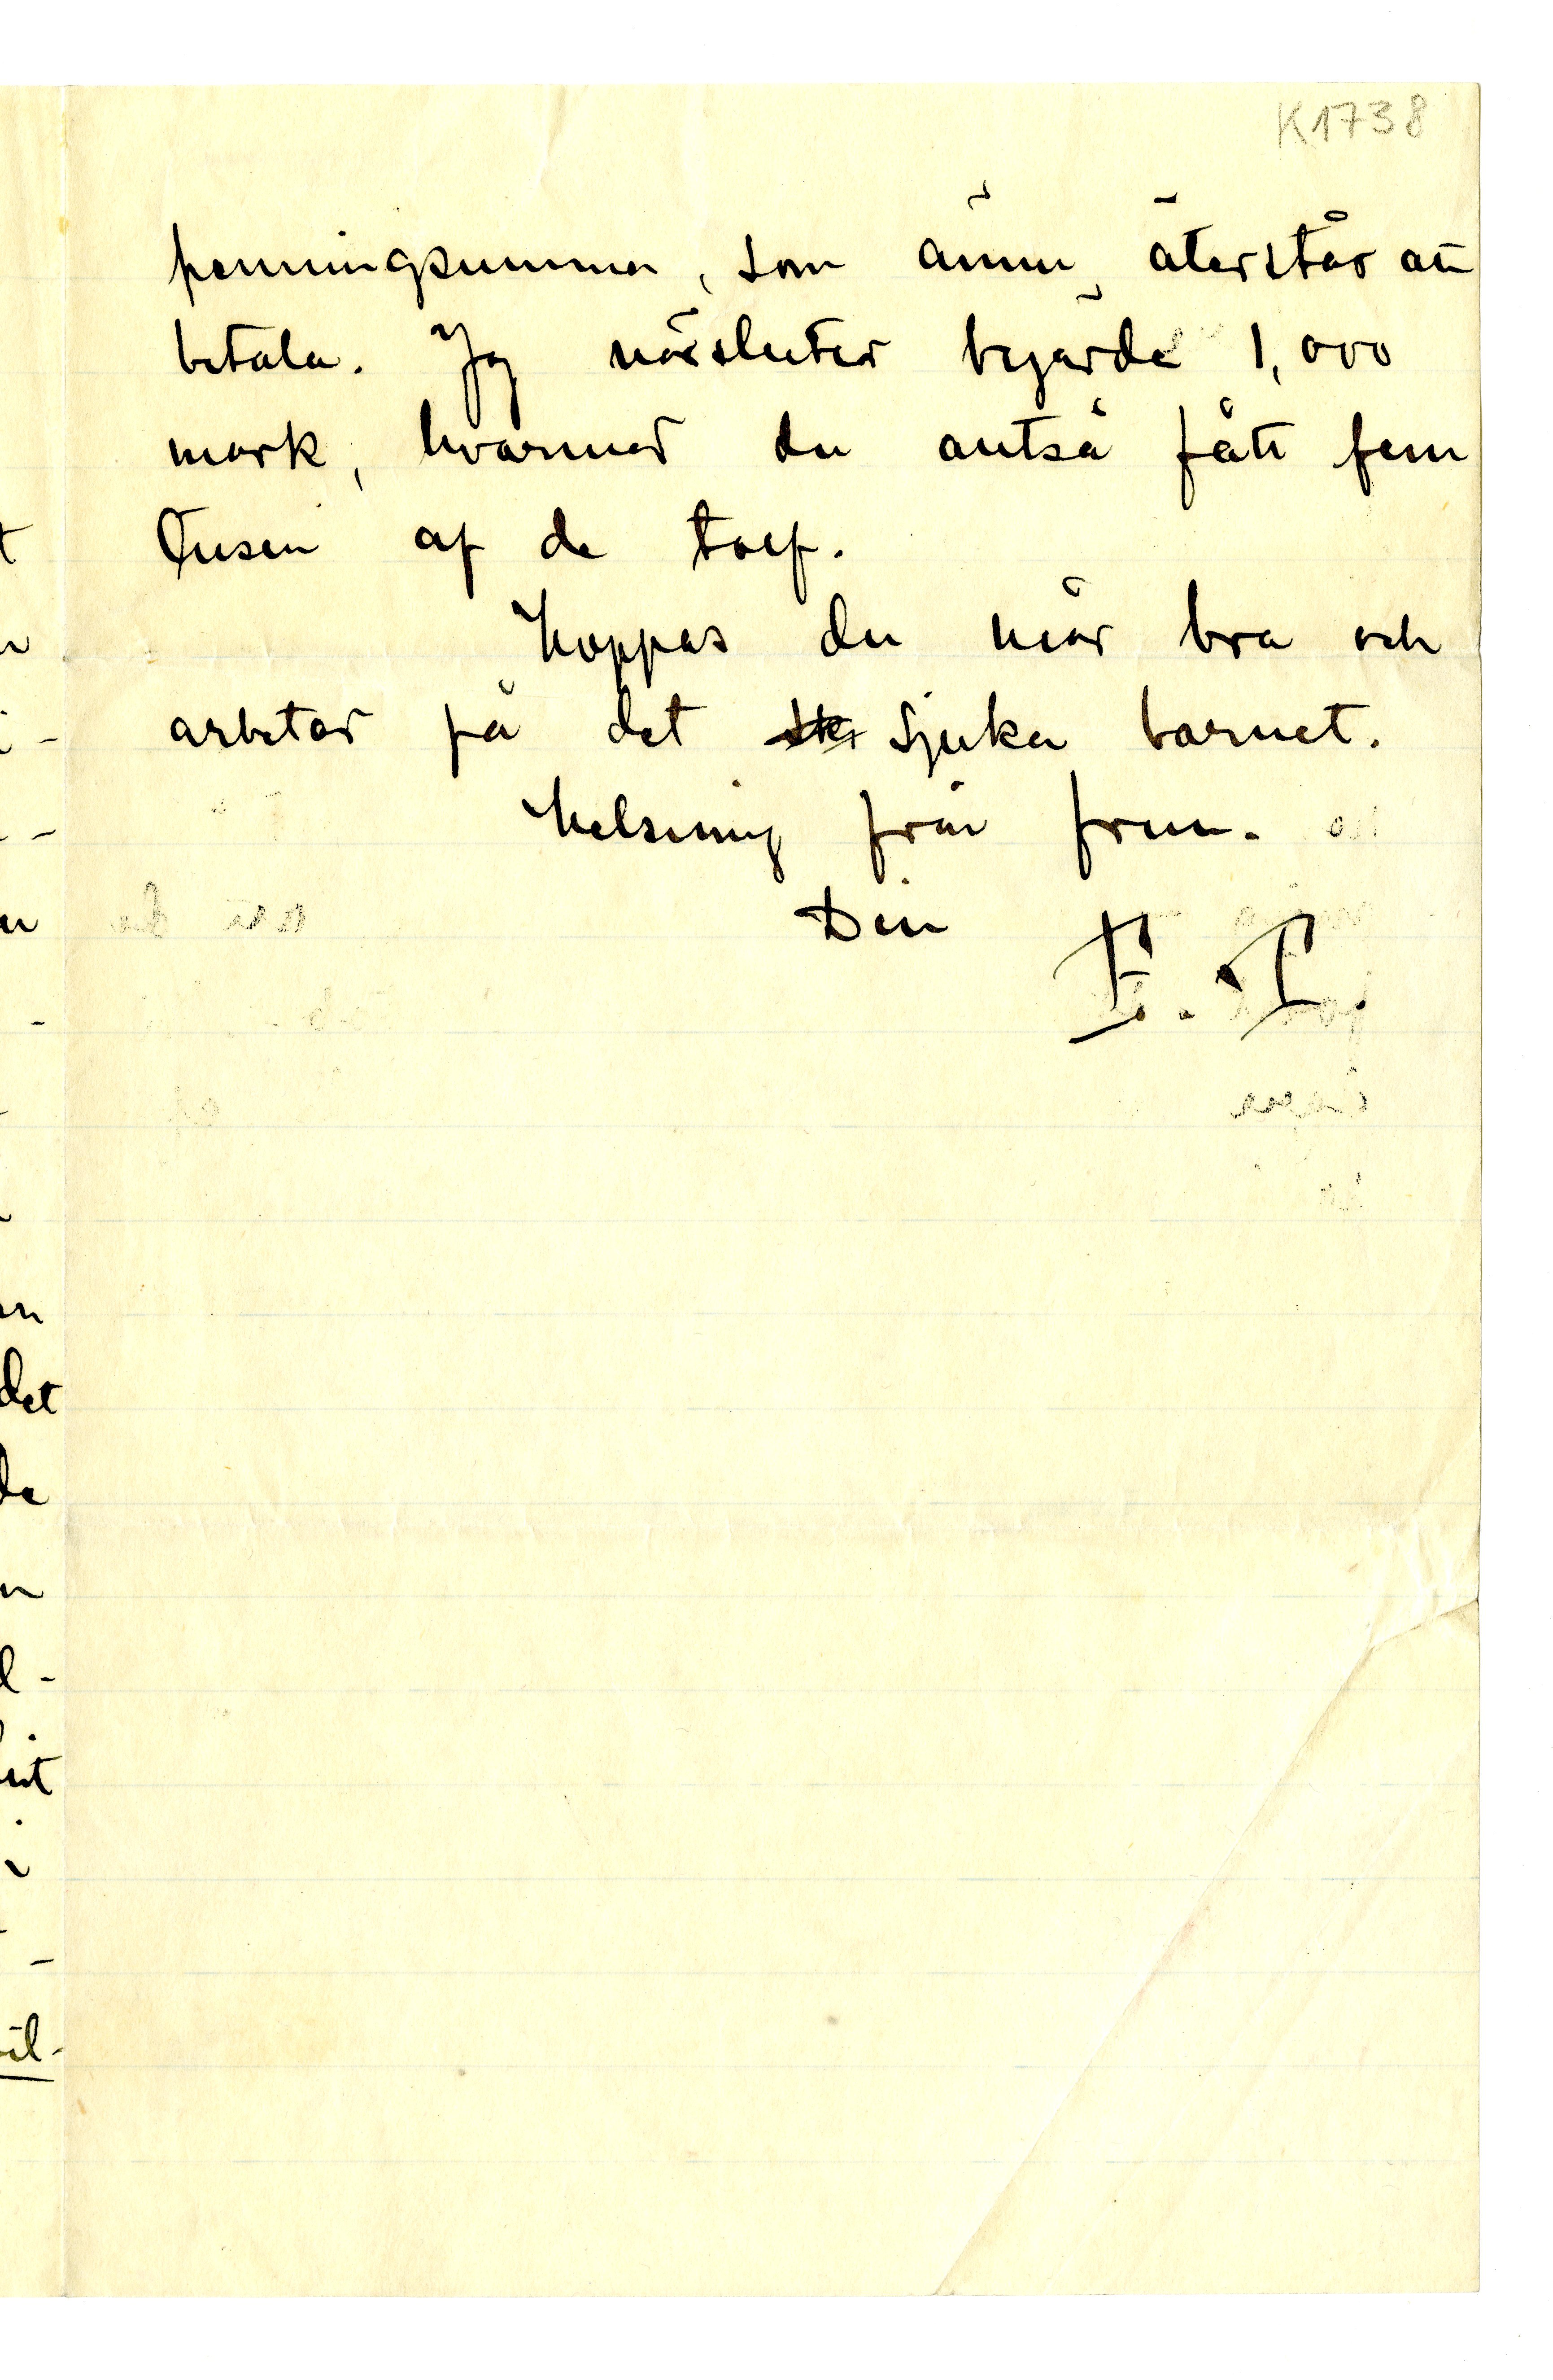 K1738
penningsumma, som ännu återstår att
betala. Jag närsluter begärde 1,000
mark, hvarmed du alltså fått fem
tusen af de tolf.
Hoppas du mår bra och
arbetar på det sjuka barnet.
Helsning från frun.
Din
det
de